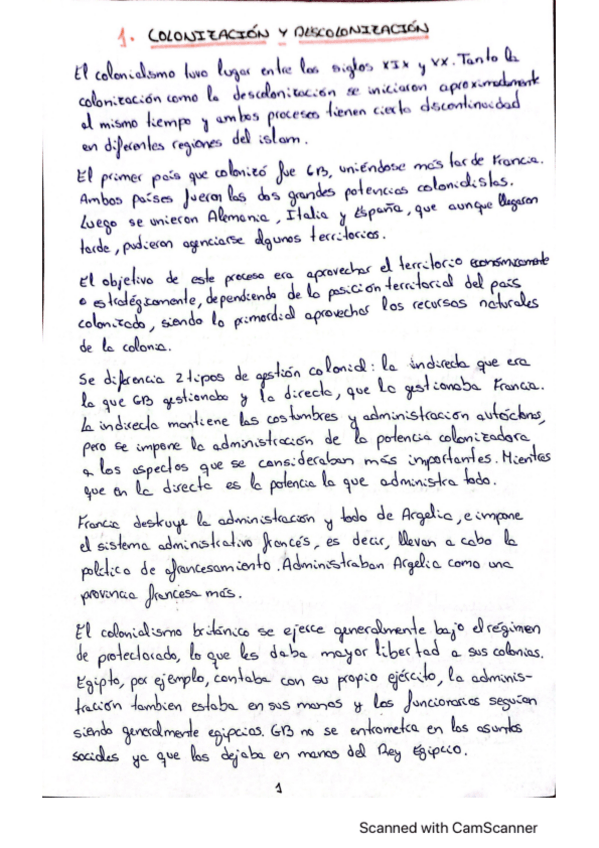 1. COLONIZACIÓN Y DESCOLONIZACIÓN
El colonialismo tuvo lugar entre los siglos XIX y XX. Tanto la
colonización como la descolonización se iniciaron aproximadamente
al mismo tiempo y ambos procesos tienen cierta discontinuidad
en diferentes regiones del islam.
El primer país que colonizó fue GB, uniéndose más tarde Francia.
Ambos países fueron las dos grandes potencias colonialistas.
Luego se unieron Alemania, Italia y España, que aunque llegaron
tarde, pudieron agenciarse algunos territorios.
El objetivo de este proceso era aprovechar el territorio económicamente
o estratégicamente, dependiendo de la posición territorial del país
colonizado, siendo lo primordial aprovechar los recursos naturales
de la colonia.
Se diferencia 2 tipos de gestión colonial: la indirecta que era
la que GB gestionaba y la directa, que la gestionaba Francia.
La indirecta mantiene las costumbres y administración autóctona,
pero se impone la administración de la potencia colonizadora
a los aspectos que se consideraban más importantes. Mientras
que en la directa es la potencia la que administra todo.
Francia destruye la administración y todo de Argelia, e impone
el sistema administrativo francés, es decir, llevan a cabo la
política de afrancesamiento. Administraban Argelia como una
provincia francesa más.
El colonialismo británico se ejerce generalmente bajo el régimen
de protectorado, lo que les daba mayor libertad a sus colonias.
Egipto, por ejemplo, contaba con su propio ejército, la adminis-
tración tambien estaba en sus manos y los funcionarios seguían
siendo generalmente egipcios. GB no se entrometía en los asuntos
sociales ya que los dejaba en manos del Rey Egipcio.
1
Scanned with CamScanner